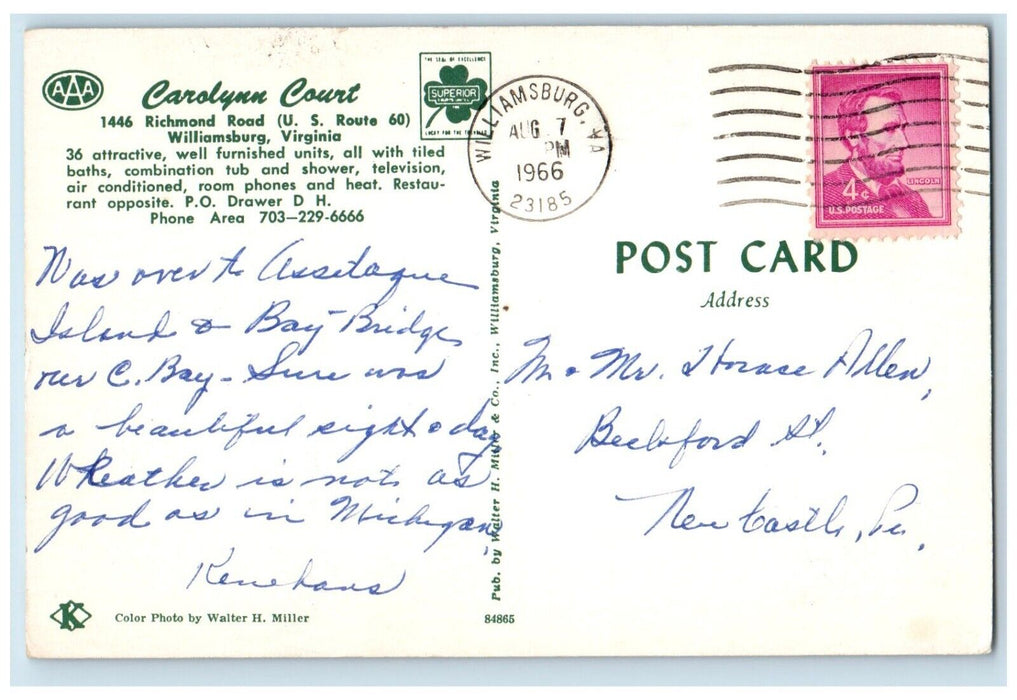 AAA
Carolynn Court
1446 Richmond Road (U. S. Route 60)
Williamsburg, Virginia
36 attractive, well furnished units, all with tiled
baths, combination tub and shower, television,
air conditioned, room phones and heat. Restau-
rant opposite. P.O. Drawer D H.
Phone Area 703-229-6666
THE SEAL OF EXCELLENCE
SUPERIOR
WILLIAMSBURG, VA
AUG 7
PM
1966
23185
4¢
LINCOLN
U.S. POSTAGE
POST CARD
Address
Was over to Assetague
Island & Bay Bridge
over C. Bay - Sure was
a beautiful sight & day
Wheather is not as
good as in Michigan,
M & Mr. Horace Allen,
St.
New Castle, Pa.
Pub. by Walter H. Miller & Co., Inc., Williamsburg, Virginia
K
Color Photo by Walter H. Miller
84865